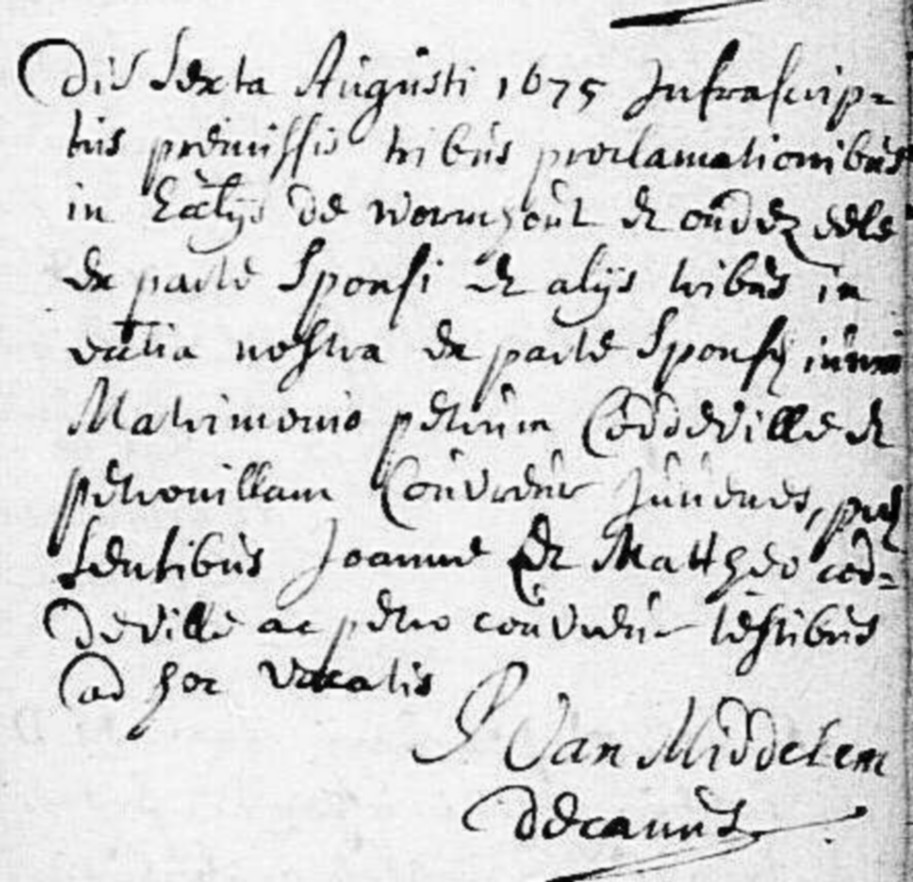 Die Sexta Augusti 1675 Infrascrip-
tus premissis tribus proclamationibus
in Ecclijs de wormhout et oudezeele
ex parte Sponsi et alijs tribus in
ecclia nostra ex parte Sponsę iunxi
Matrimonio petrum Coddeville et
petronillam Couvreur Juvenes, prę
sentibus Joanne et Mattheo cod-
deville ac petro couvreur testibus
ad hoc vocatis
J Van Middelem
decanus